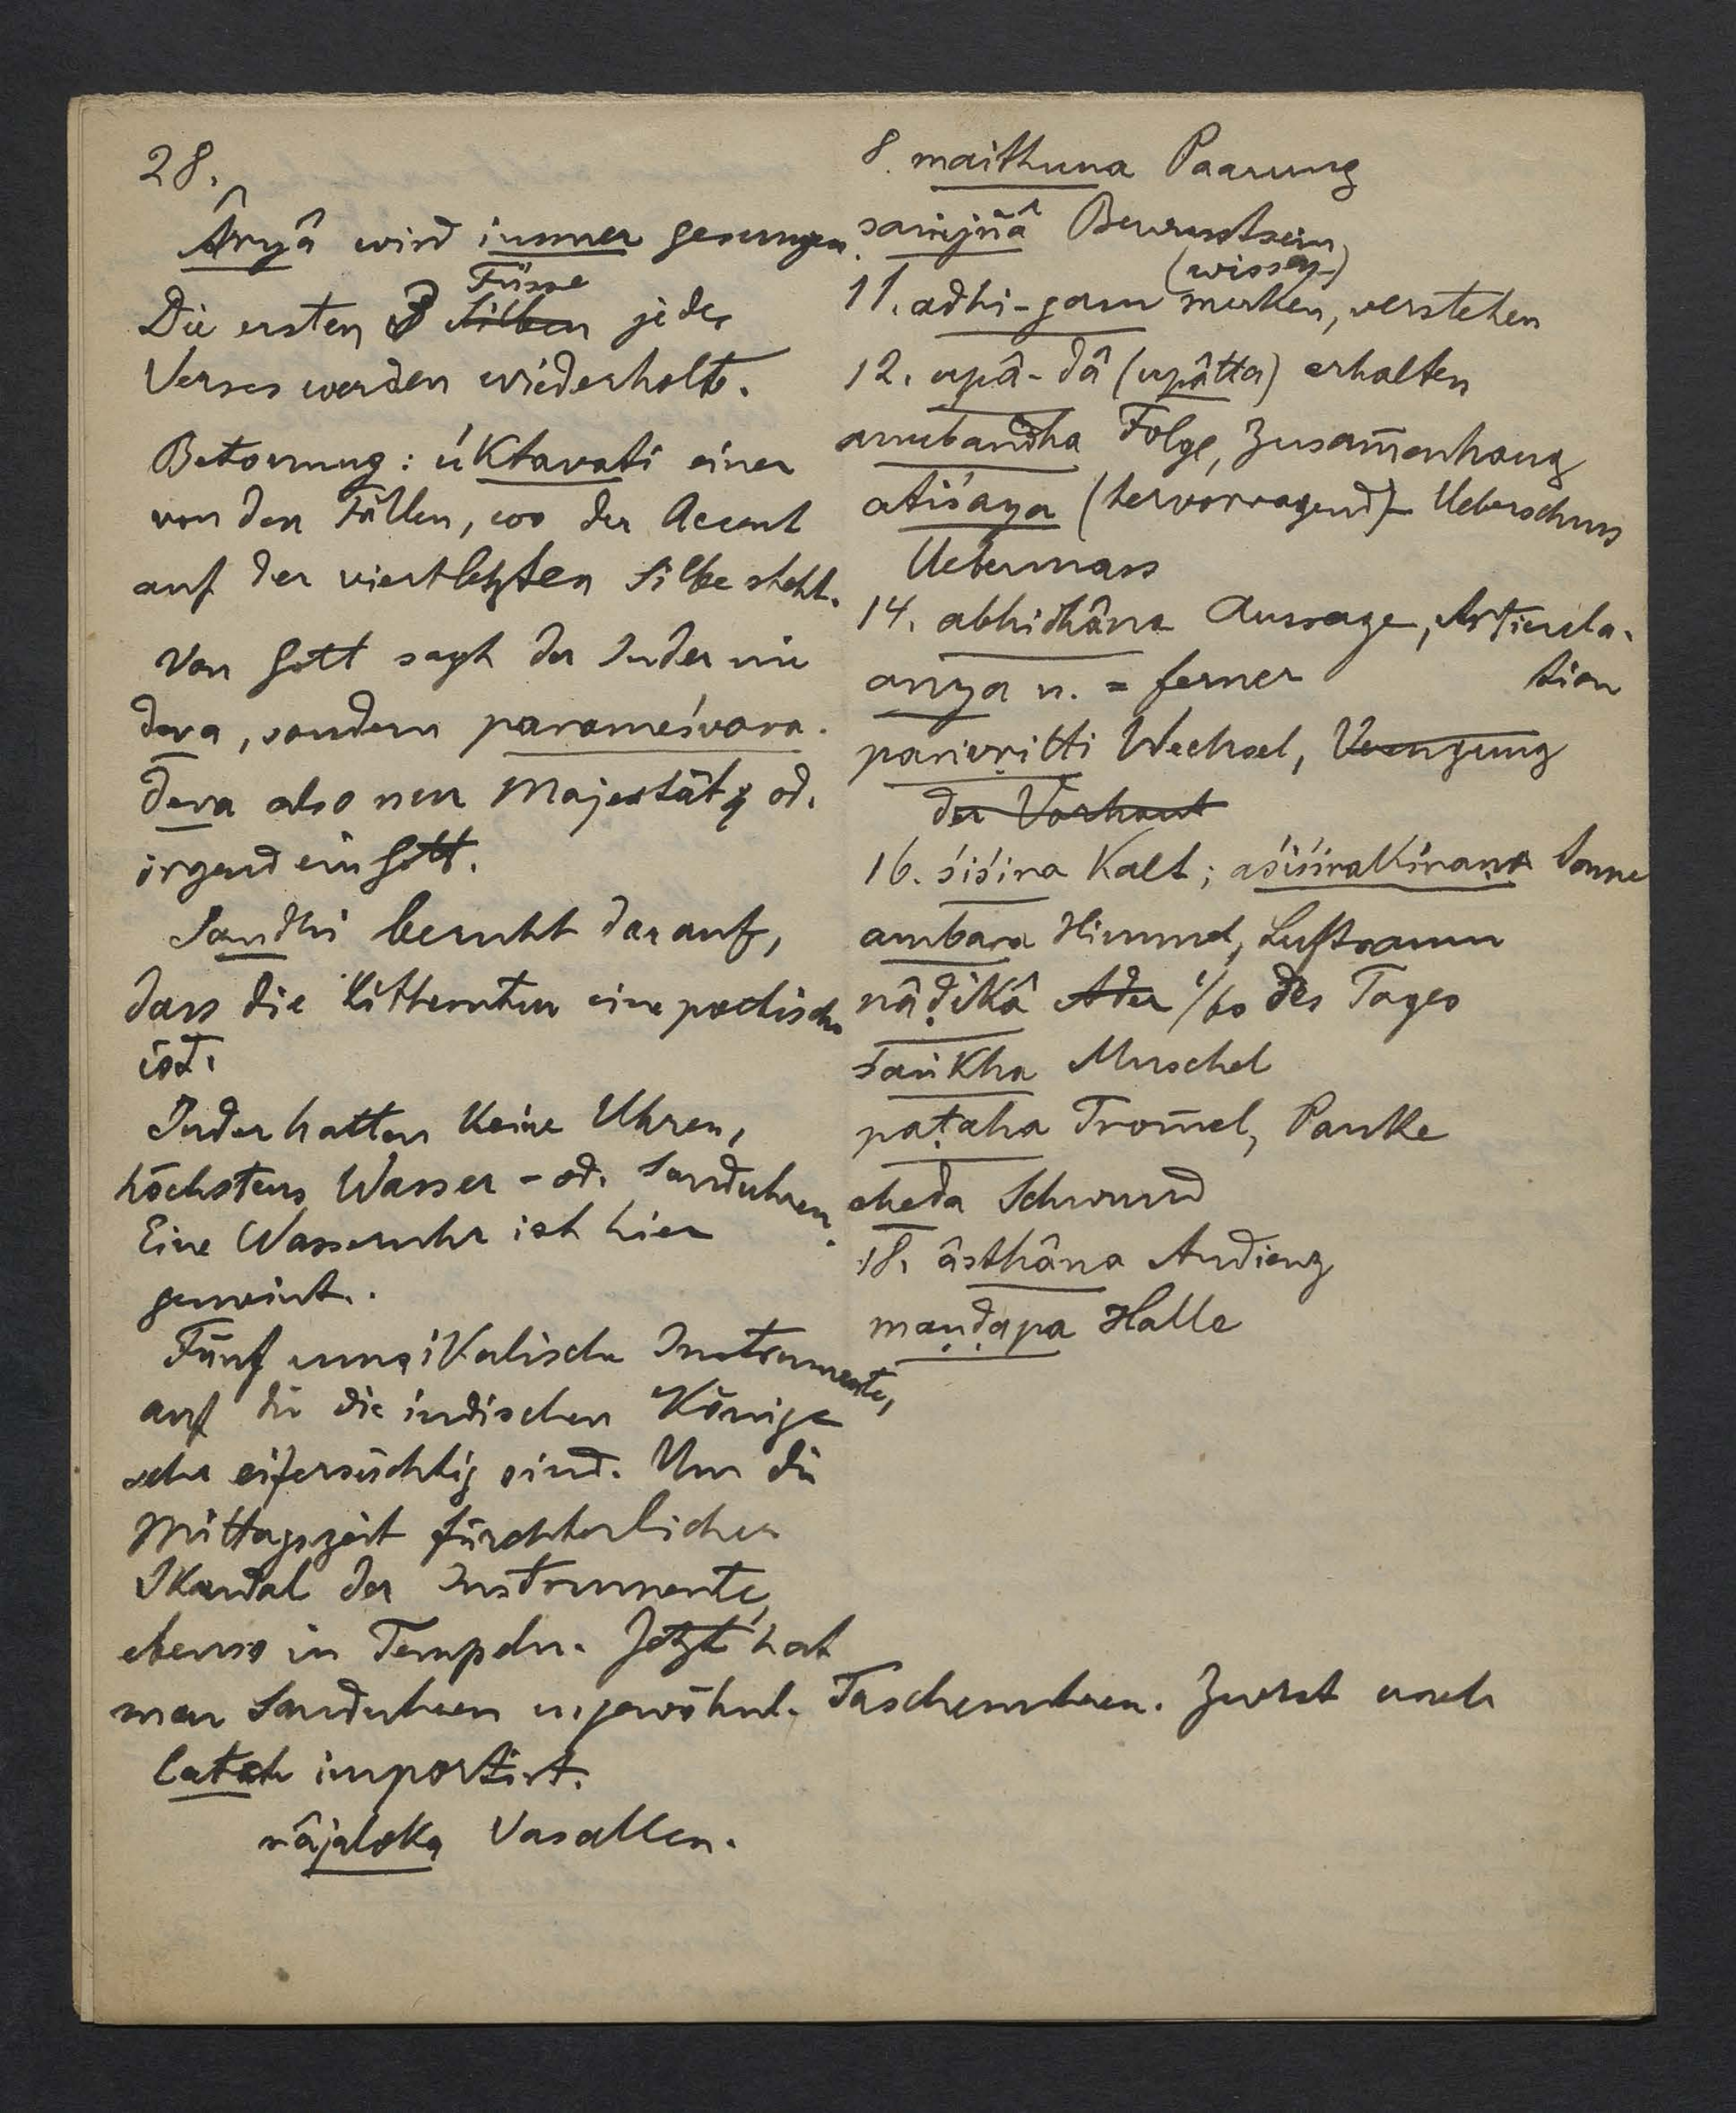 28.
Âryâ wird immer gesungen.
Füsse
Die ersten 3 Silben jedes
Verses werden wiederholt.
Betonung: úktavati einer
von den Fällen, wo der Accent
auf der viertletzten Silbe steht.
Von Gott sagt der Inder nie
deva, sondern parameśvara.
deva also nur Majestät od.
irgend ein Gott.
Sandhi beruht darauf,
dass die Litteratur eine poetische
ist.
Inder hatten keine Uhren,
höchstens Wasser- od. Sanduhren.
Eine Wasseruhr ist hier
gemeint.
Fünf musikalische Instrumente,
auf die die indischen Könige
sehr eifersüchtig sind. Um die
Mittagszeit fürchterlicher
Skandal der Instrumente,
ebenso in Tempeln. Jetzt hat
man Sanduhren u. gewöhnl. Taschenuhren. Zuerst nach
importirt.
râjaloka Vasallen.
8. maithuna Paarung
saṁjñâ Bewusstsein
(wissen)
11. adhi-gam merken, verstehen
12. upâ-dâ (upâtta) erhalten
anubandha Folge, Zusam̅enhang
atiśaya (hervorragend) - Ueberschuss
Uebermass
14. abhidhâna Aussage, Articula-
tion
anya n. = ferner
parivṛitti Wechsel, Verengung
der Vorhaut
16. śiśira kalt; aśiśirakiraṇa Sonne
ambara Himmel, Luftraum
nâḍikâ Ader 1/60 des Tages
śaṅkha Muschel
paṭaha Trom̅el, Pauke
cheda Schwund
18. âsthâna Audienz
maṇḍapa Halle